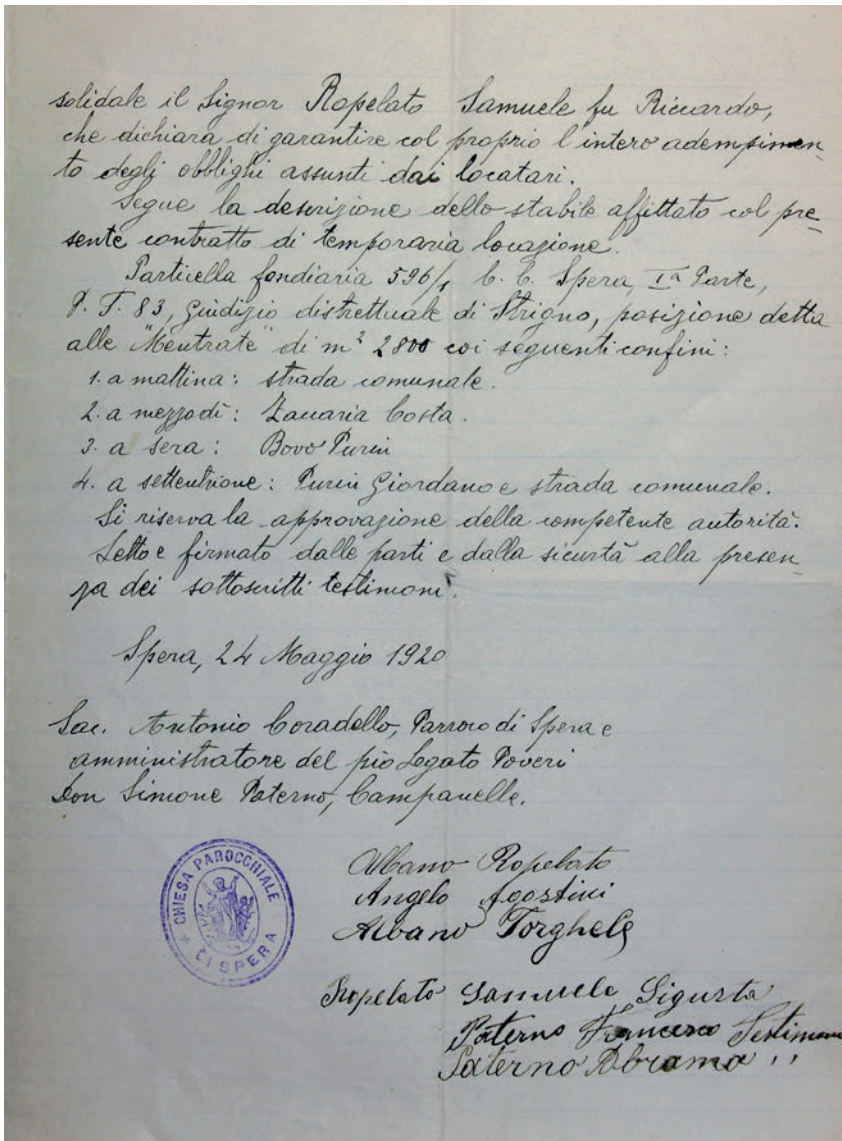 solidale il Signor Ropelato Samuele fu Riccardo,
che dichiara di garantire col proprio l'intero adempimen-
to degli obblighi assunti dai locatari.
Segue la descrizione dello stabile affittato col pre-
sente contratto di temporaria locazione.
Particella fondiaria 596/1 C. C. Spera, Iª Parte,
P. T. 83, Giudizio distrettuale di Strigno, posizione detta
alle "Mentrate" di m² 2800 coi seguenti confini:
1. a mattina: strada comunale.
2. a mezzodì: Zaccaria Costa.
3. a sera: Bovo Purin
4. a settentrione: Purin Giordano e strada comunale.
Si riserva la approvazione della competente autorità.
Letto e firmato dalle parti e dalla sicurtà alla presen-
za dei sottoscritti testimoni.
Spera, 24 Maggio 1920
Sac. Antonio Coradello, Parroco di Spera e
amministratore del pio Legato Poveri
Don Simone Paterno, Campanelle.
CHIESA PAROCCHIALE
DI SPERA
Albano Ropelato
Angelo Agostini
Albano Torghele
Ropelato Samuele Sigurta
Paterno Francesco Testimone
Paterno Abramo ,,